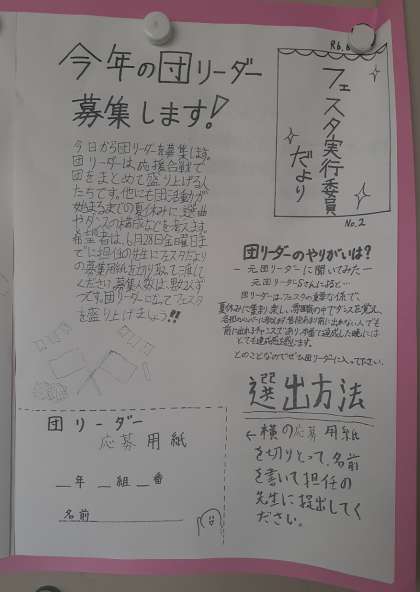 今年の団リーダー
募集します!
R6.6
フェスタ実行委員
だより
No.2
今日から団リーダーを募集します。
団リーダーは、応援合戦で
団をまとめて盛り上げる人
たちです。他にも団活動が
始まるまでの夏休みに、選曲
やダンスの構成などを考えます。
希望者は、6月28日金曜日ま
でに担任の先生にフェスタだより
の募集用紙を切り取って渡して
ください。募集人数は、
つです。団リーダーになってフェスタ
を盛り上げましょう!!
団リーダーのやりがいは?
ー元団リーダーに聞いてみたー
元団リーダーSさんによると…
団リーダーはフェスタの重要な係で、
夏休みに集まり楽しい雰囲気の中でダンスを覚え、
前に出れるチャンスであり、本番で達成した暁には
とても達成感を感じます。
とのことなのでぜひ団リーダーに入って下さい。
選出方法
←横の応募用紙
を切りとって、名前
を書いて担任の
先生に提出してく
ださい。
団リーダー
応募用紙
__年__組__番
名前